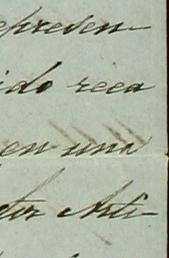 epresen-
ido reca
en una
tor Arti-